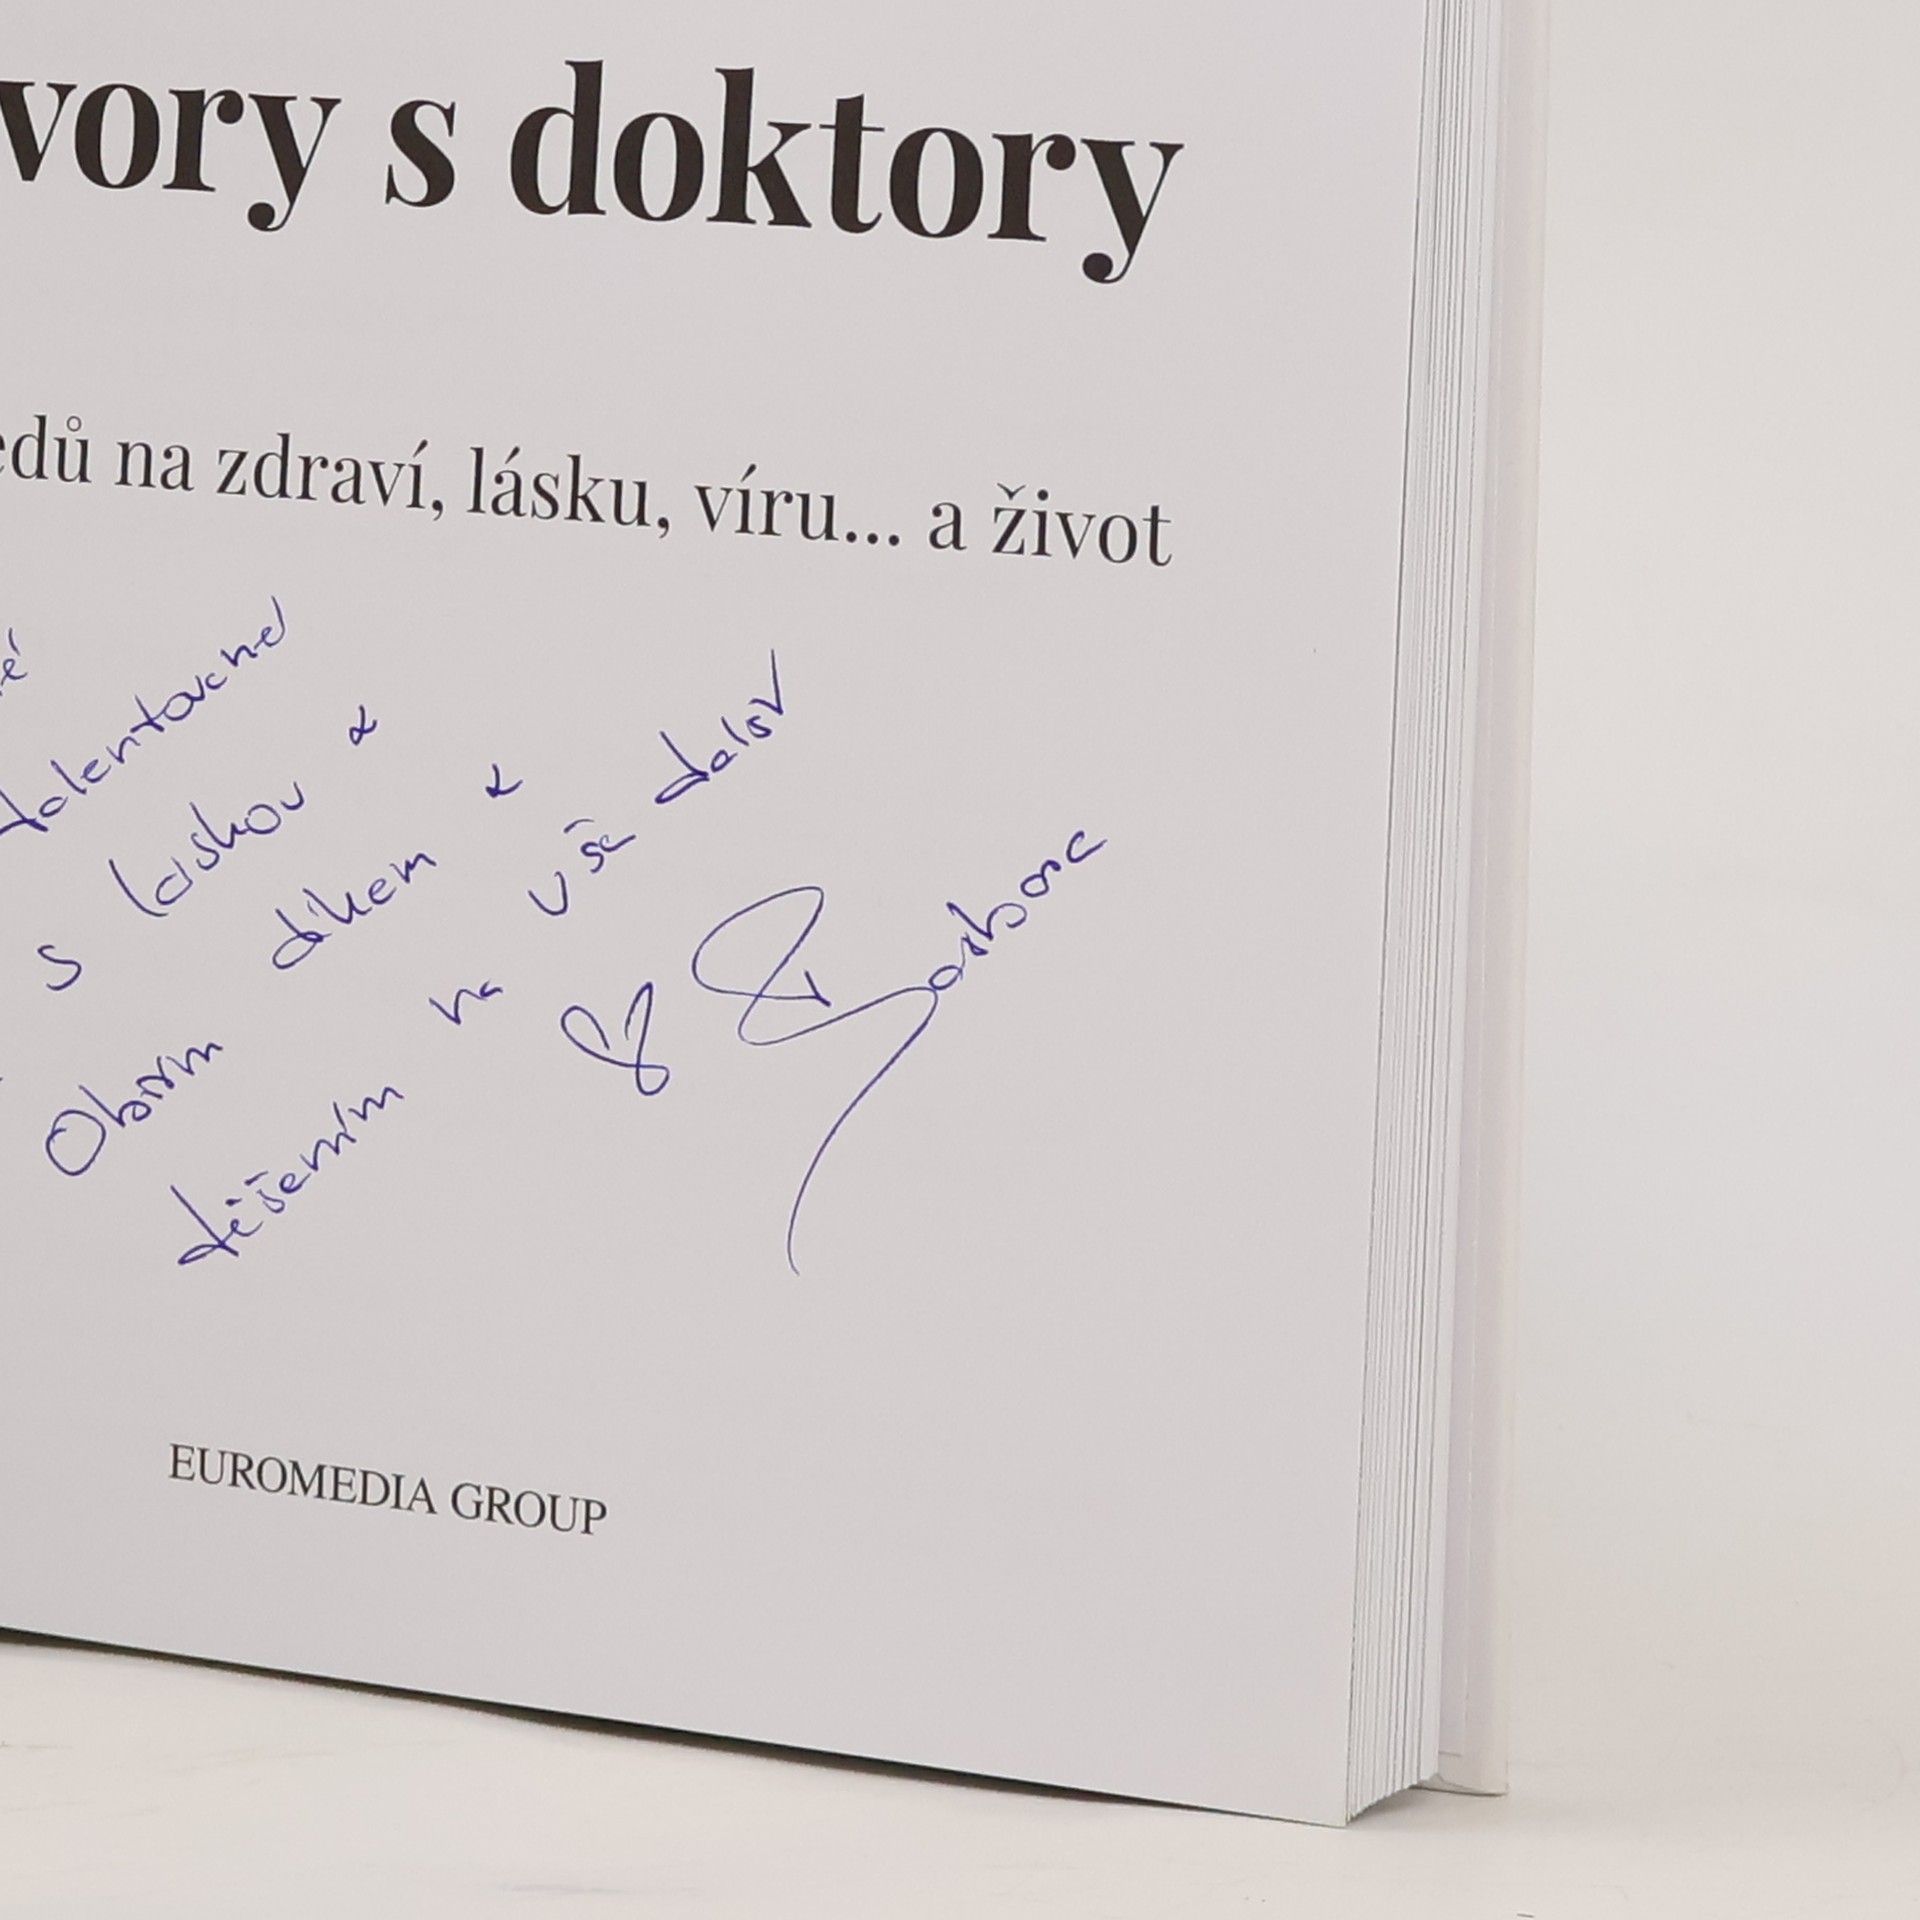 vory s doktory
edů na zdraví, lásku, víru... a život
é
talentované
s láskou &
Obřím díkem &
těšením na vše další
♡ Barbora
EUROMEDIA GROUP